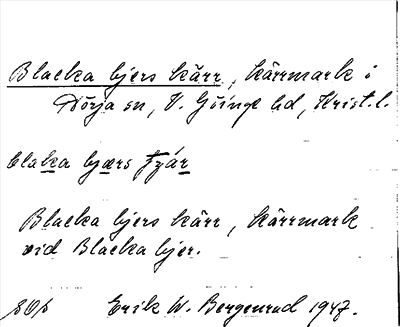 Blacka bjers kärr, kärrmark i
Norja sn, V. Göinge hd, Krist. l.
blaka bjærs tjär
Blacka bjers kärr, kärrmark
vid Blacka bjer.
Erik W. Bergenrud 1947.